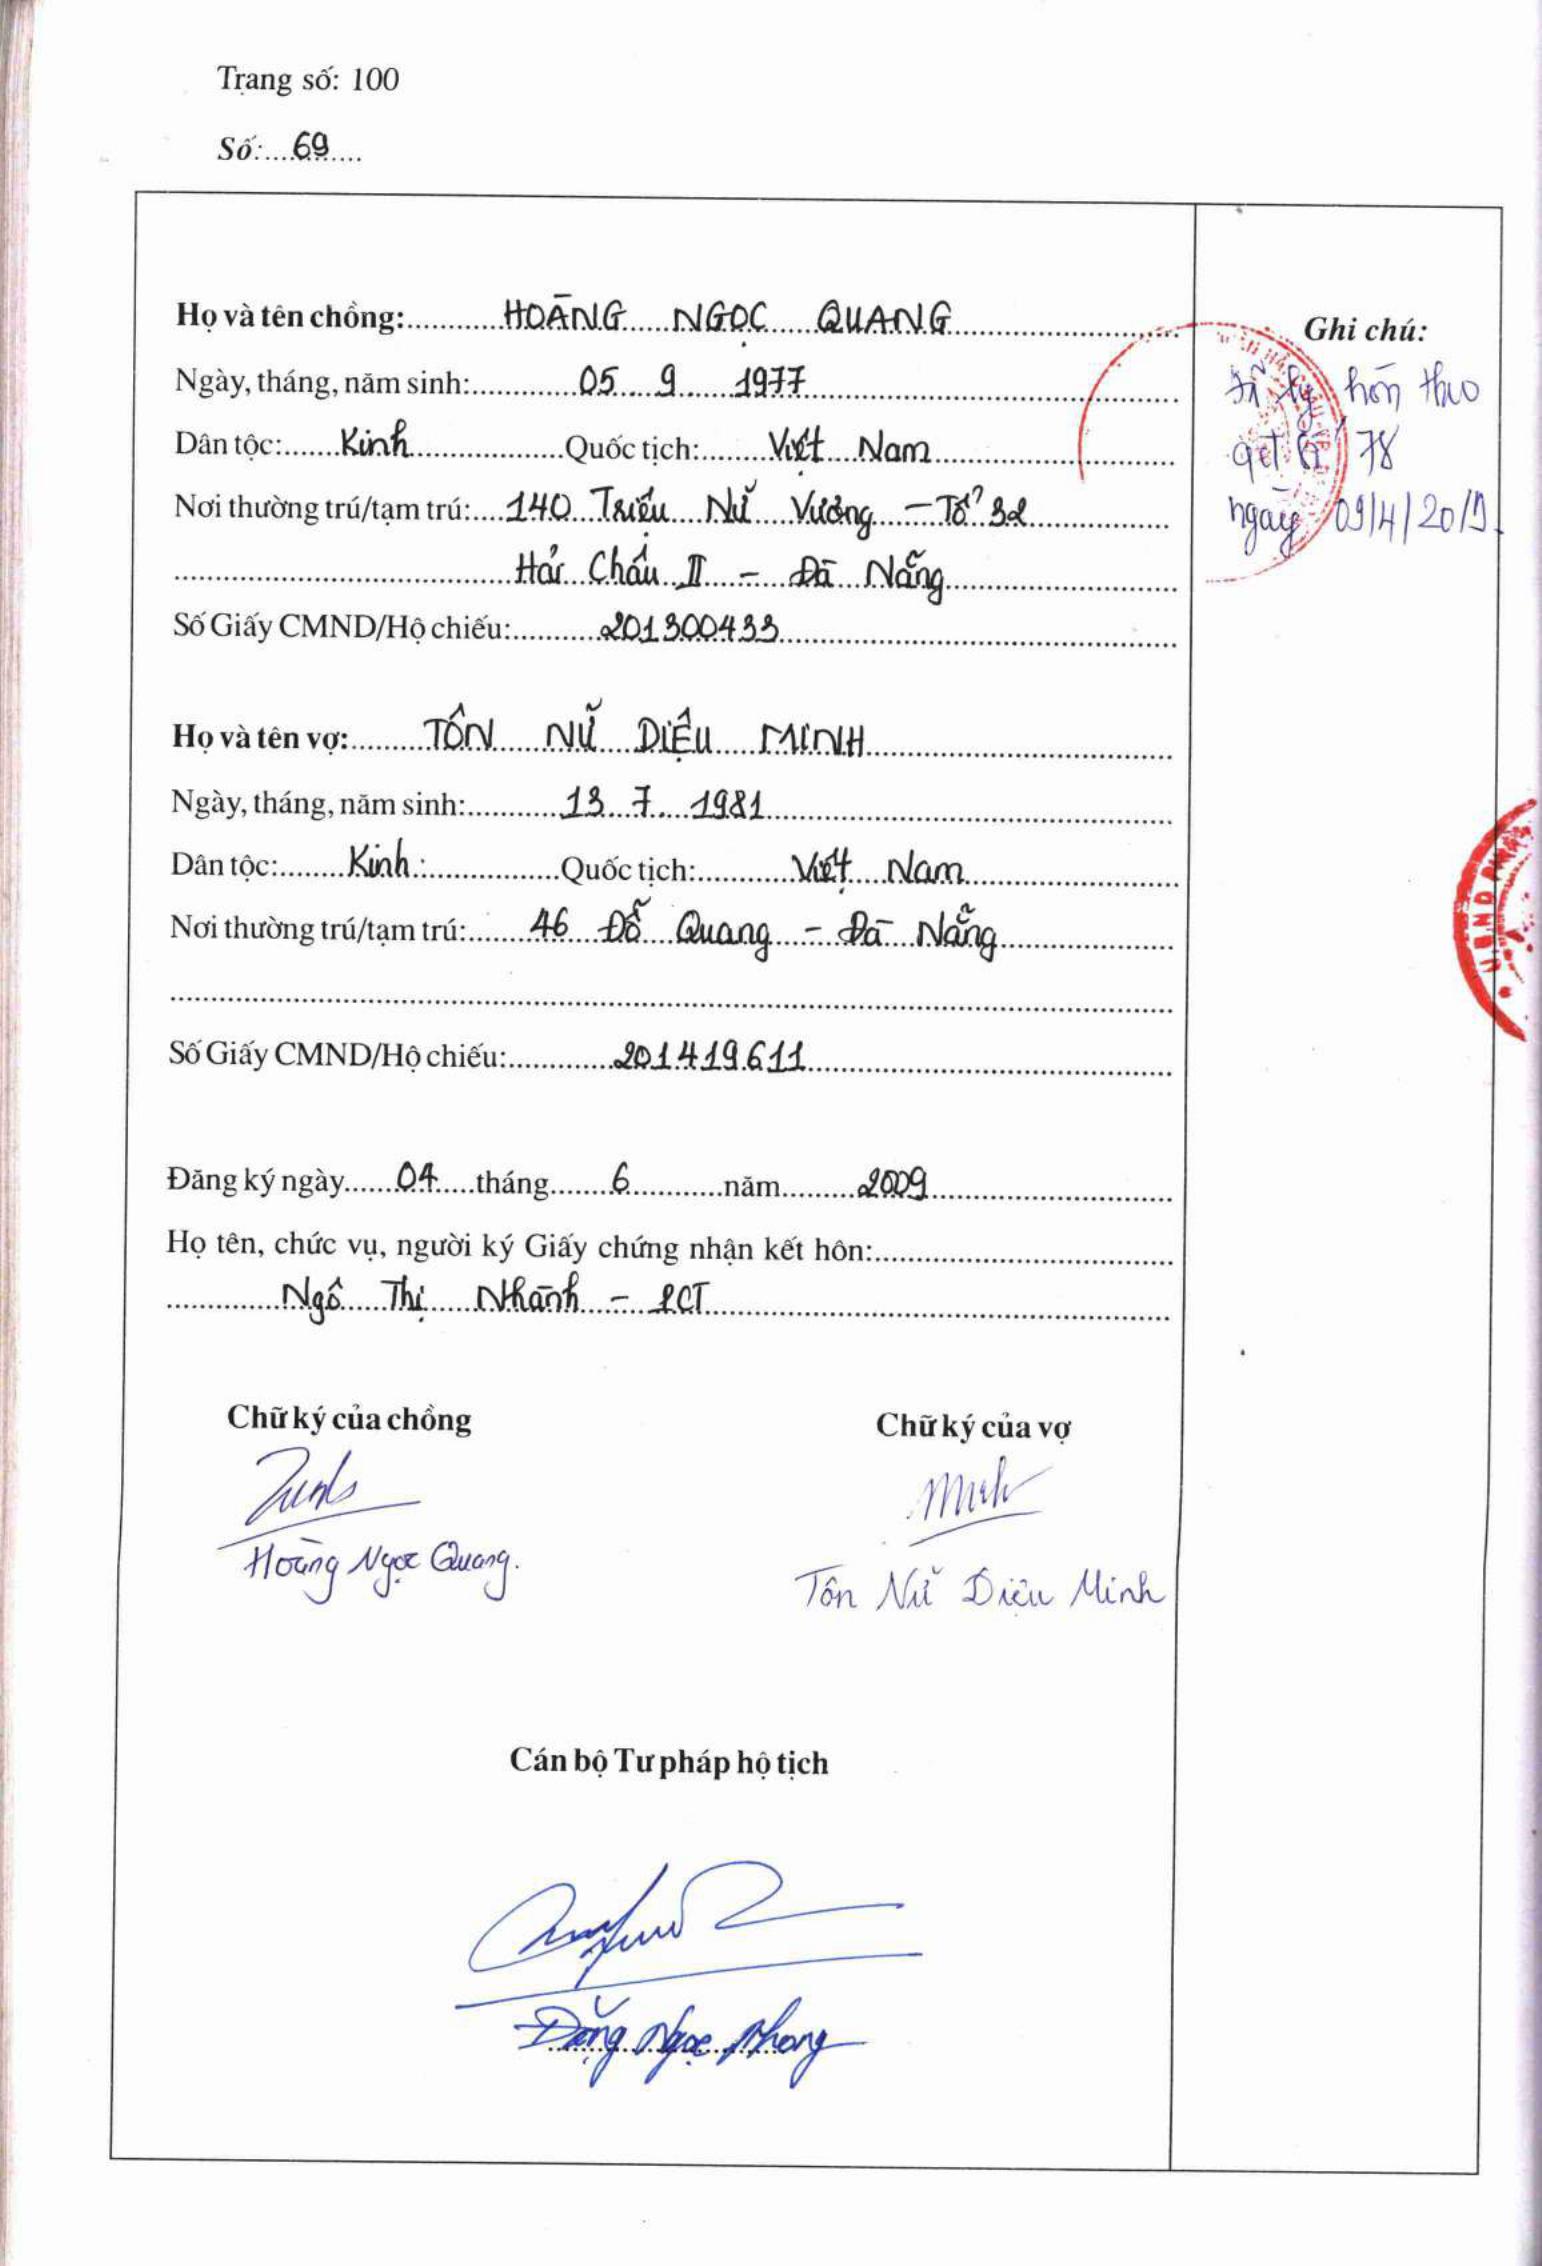 Trang số: 100
Số: 69
Họ và tên chồng: HOÀNG NGỌC QUANG
Ngày, tháng, năm sinh: 05 9 1977
Dân tộc: Kinh Quốc tịch: Việt Nam
Nơi thường trú/tạm trú: 140 Triệu Nữ Vương - Tổ 32
Hải Châu II - Đà Nẵng
Số Giấy CMND/Hộ chiếu: 201300433
Họ và tên vợ: TÔN NỮ DIỆU MINH
Ngày, tháng, năm sinh: 13 7 1981
Dân tộc: Kinh Quốc tịch: Việt Nam
Nơi thường trú/tạm trú: 46 Đỗ Quang - Đà Nẵng
Số Giấy CMND/Hộ chiếu: 201419611
Đăng ký ngày 04 tháng 6 năm 2009
Họ tên, chức vụ, người ký Giấy chứng nhận kết hôn:
Ngô Thị Nhành - PCT
Chữ ký của chồng
Hoàng Ngọc Quang.
Chữ ký của vợ
Minh
Tôn Nữ Diệu Minh
Cán bộ Tư pháp hộ tịch
Đặng Ngọc Phong
Ghi chú:
Đã ly hôn theo
78
ngày 09/4/2019
UBND